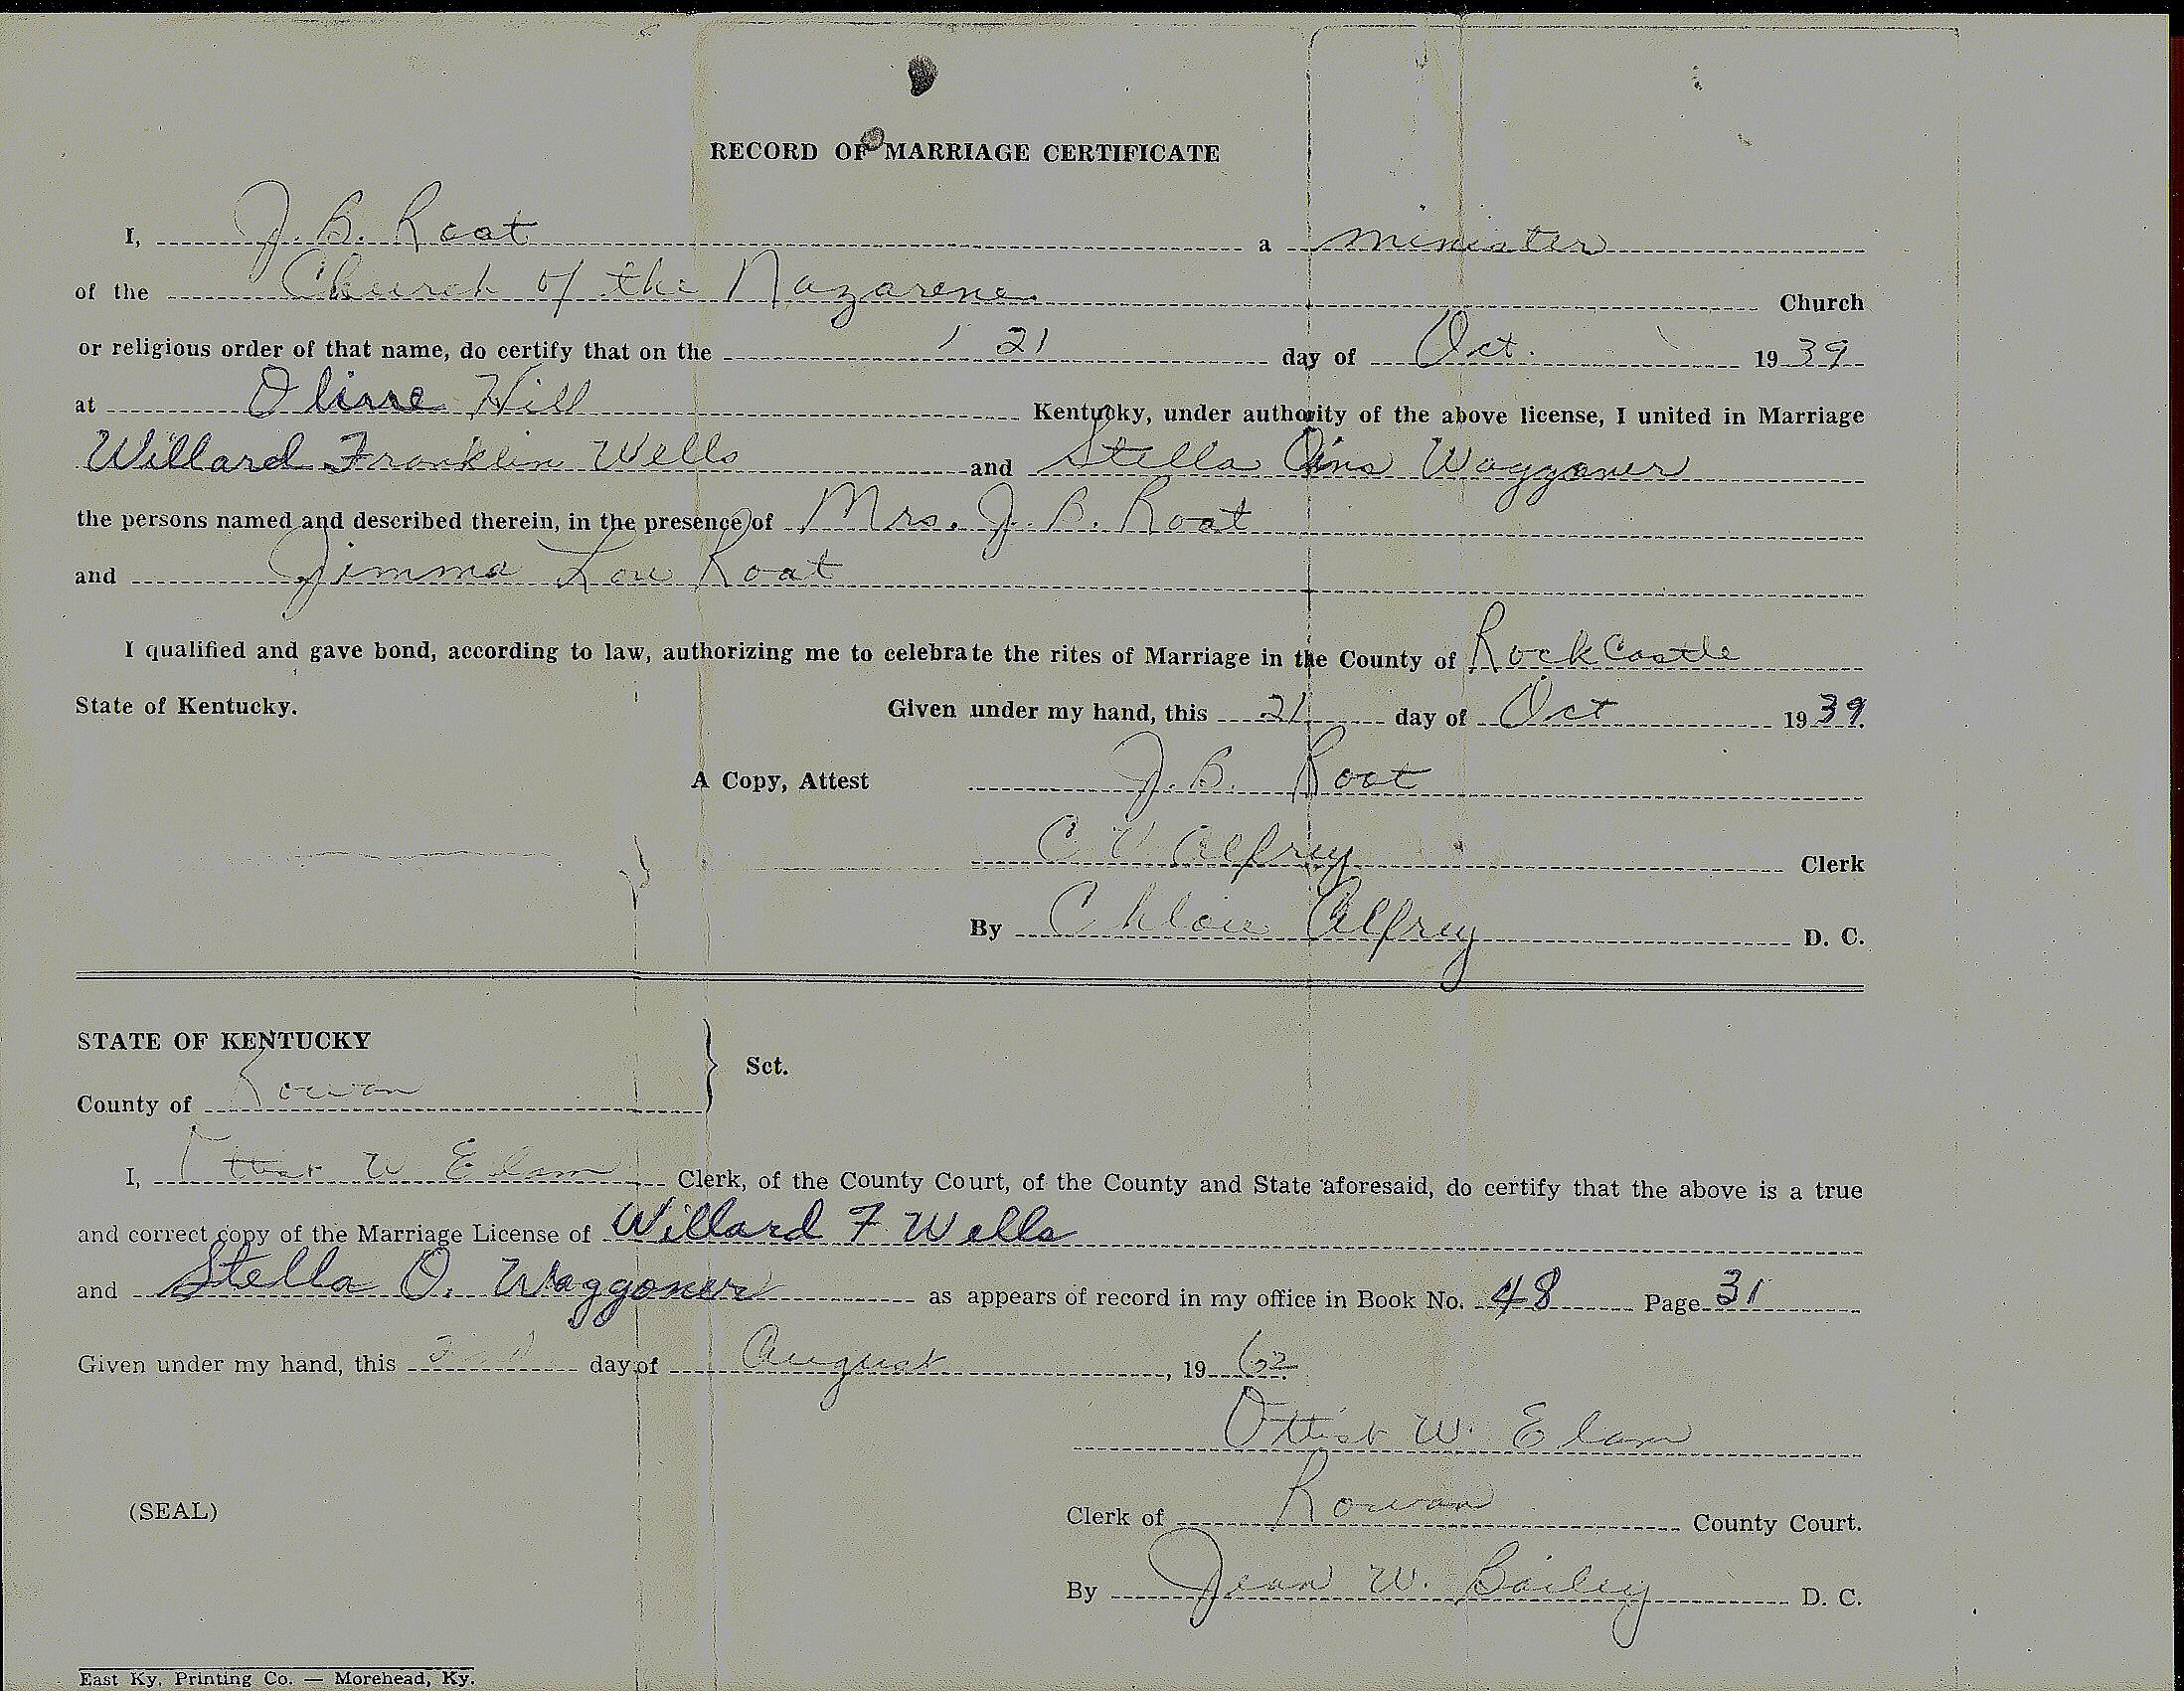 RECORD OF MARRIAGE CERTIFICATE
I, J. B. Roat a minister
of the Church of the Nazarene Church
or religious order of that name, do certify that on the 21 day of Oct. 1939
at Olive Hill Kentucky, under authority of the above license, I united in Marriage
Willard Franklin Wells and Stella Waggoner
the persons named and described therein, in the presence of Mrs. J. B. Roat
and Jimma Lou Roat
I qualified and gave bond, according to law, authorizing me to celebrate the rites of Marriage in the County of RockCastle
State of Kentucky. Given under my hand, this 21 day of Oct 1939.
A Copy, Attest J. B. Roat
C V Alfrey Clerk
By Chloie Alfrey D. C.
STATE OF KENTUCKY
Sct.
County of Rowan
I, Ottist W Elam Clerk, of the County Court, of the County and State aforesaid, do certify that the above is a true
and correct copy of the Marriage License of Willard F Wells
and Stella O. Waggoner as appears of record in my office in Book No. 48 Page 31
Given under my hand, this day of August, 1962.
Ottist W. Elam
Clerk of Rowan County Court.
(SEAL)
By Jean W. Bailey D. C.
East Ky. Printing Co. — Morehead, Ky.